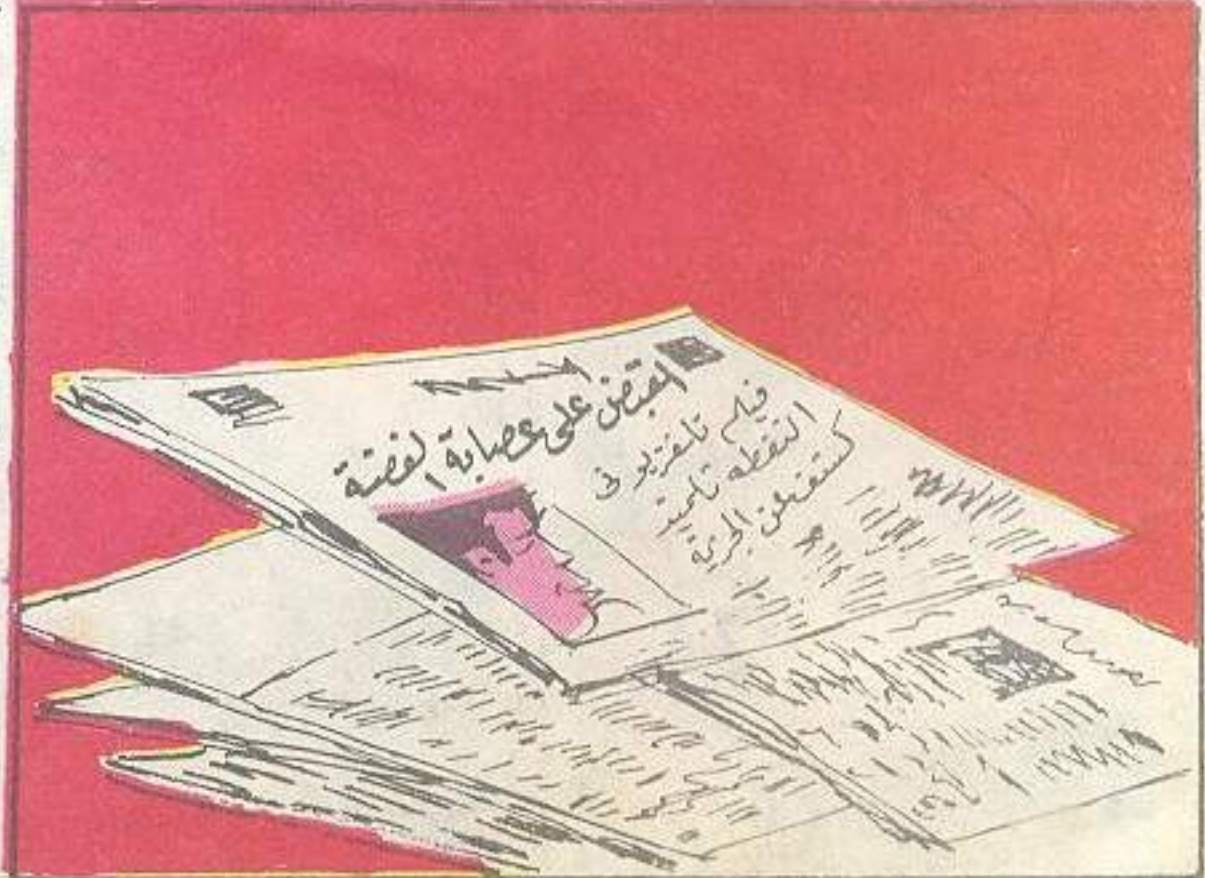 القبض على عصابة الفضة
فيلم تلفزيونى
التقطه تلميذ
كشف عن الجريمة